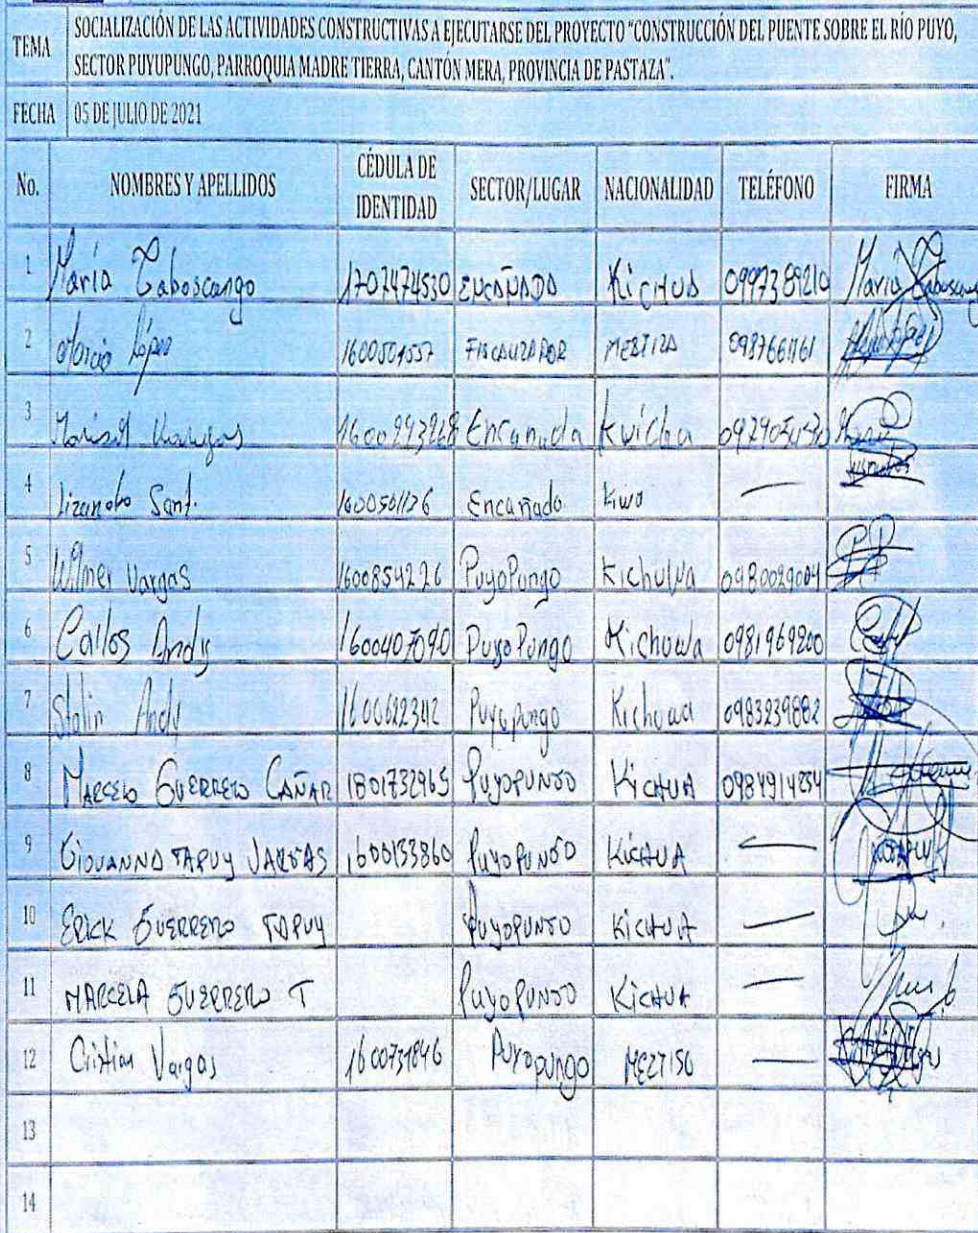 TEMA SOCIALIZACIÓN DE LAS ACTIVIDADES CONSTRUCTIVAS A EJECUTARSE DEL PROYECTO "CONSTRUCCIÓN DEL PUENTE SOBRE EL RÍO PUYO,
SECTOR PUYUPUNGO, PARROQUIA MADRE TIERRA, CANTÓN MERA, PROVINCIA DE PASTAZA".
FECHA 05 DE JULIO DE 2021
No. NOMBRES Y APELLIDOS CÉDULA DE IDENTIDAD SECTOR/LUGAR NACIONALIDAD TELÉFONO FIRMA
1 María Cabascango 1707474530 ENCAÑADA Kichua 0997389210 María
2 López 1600501557 FISCALIZADOR MESTIZA
3 Encanada Kwicha
4 Sant. 1600501126 Encañado Kwo
5 Wilmer Vargas 1600854226 PuyoPungo Kichuwa 0980029004
6 Carlos Andy 1600407090 PuyoPungo Kichuwa 0981969200
7 Stalin Andy 1600612342 Puyopungo Kichuwa 0983239882
8 MARCELO GUERRERO CAÑAR 1801732965 PUYOPUNGO KICHUA 0984914254
9 GIOVANNO TAPUY VARGAS 1600133860 PUYOPUNGO KICHUA
10 ERICK GUERRERO TAPUY PUYOPUNGO KICHUA
11 MARCELA GUERRERO T PUYOPUNGO KICHUA
12 Cristian Vargas 1600731846 Puyopungo MEZTISO
13
14